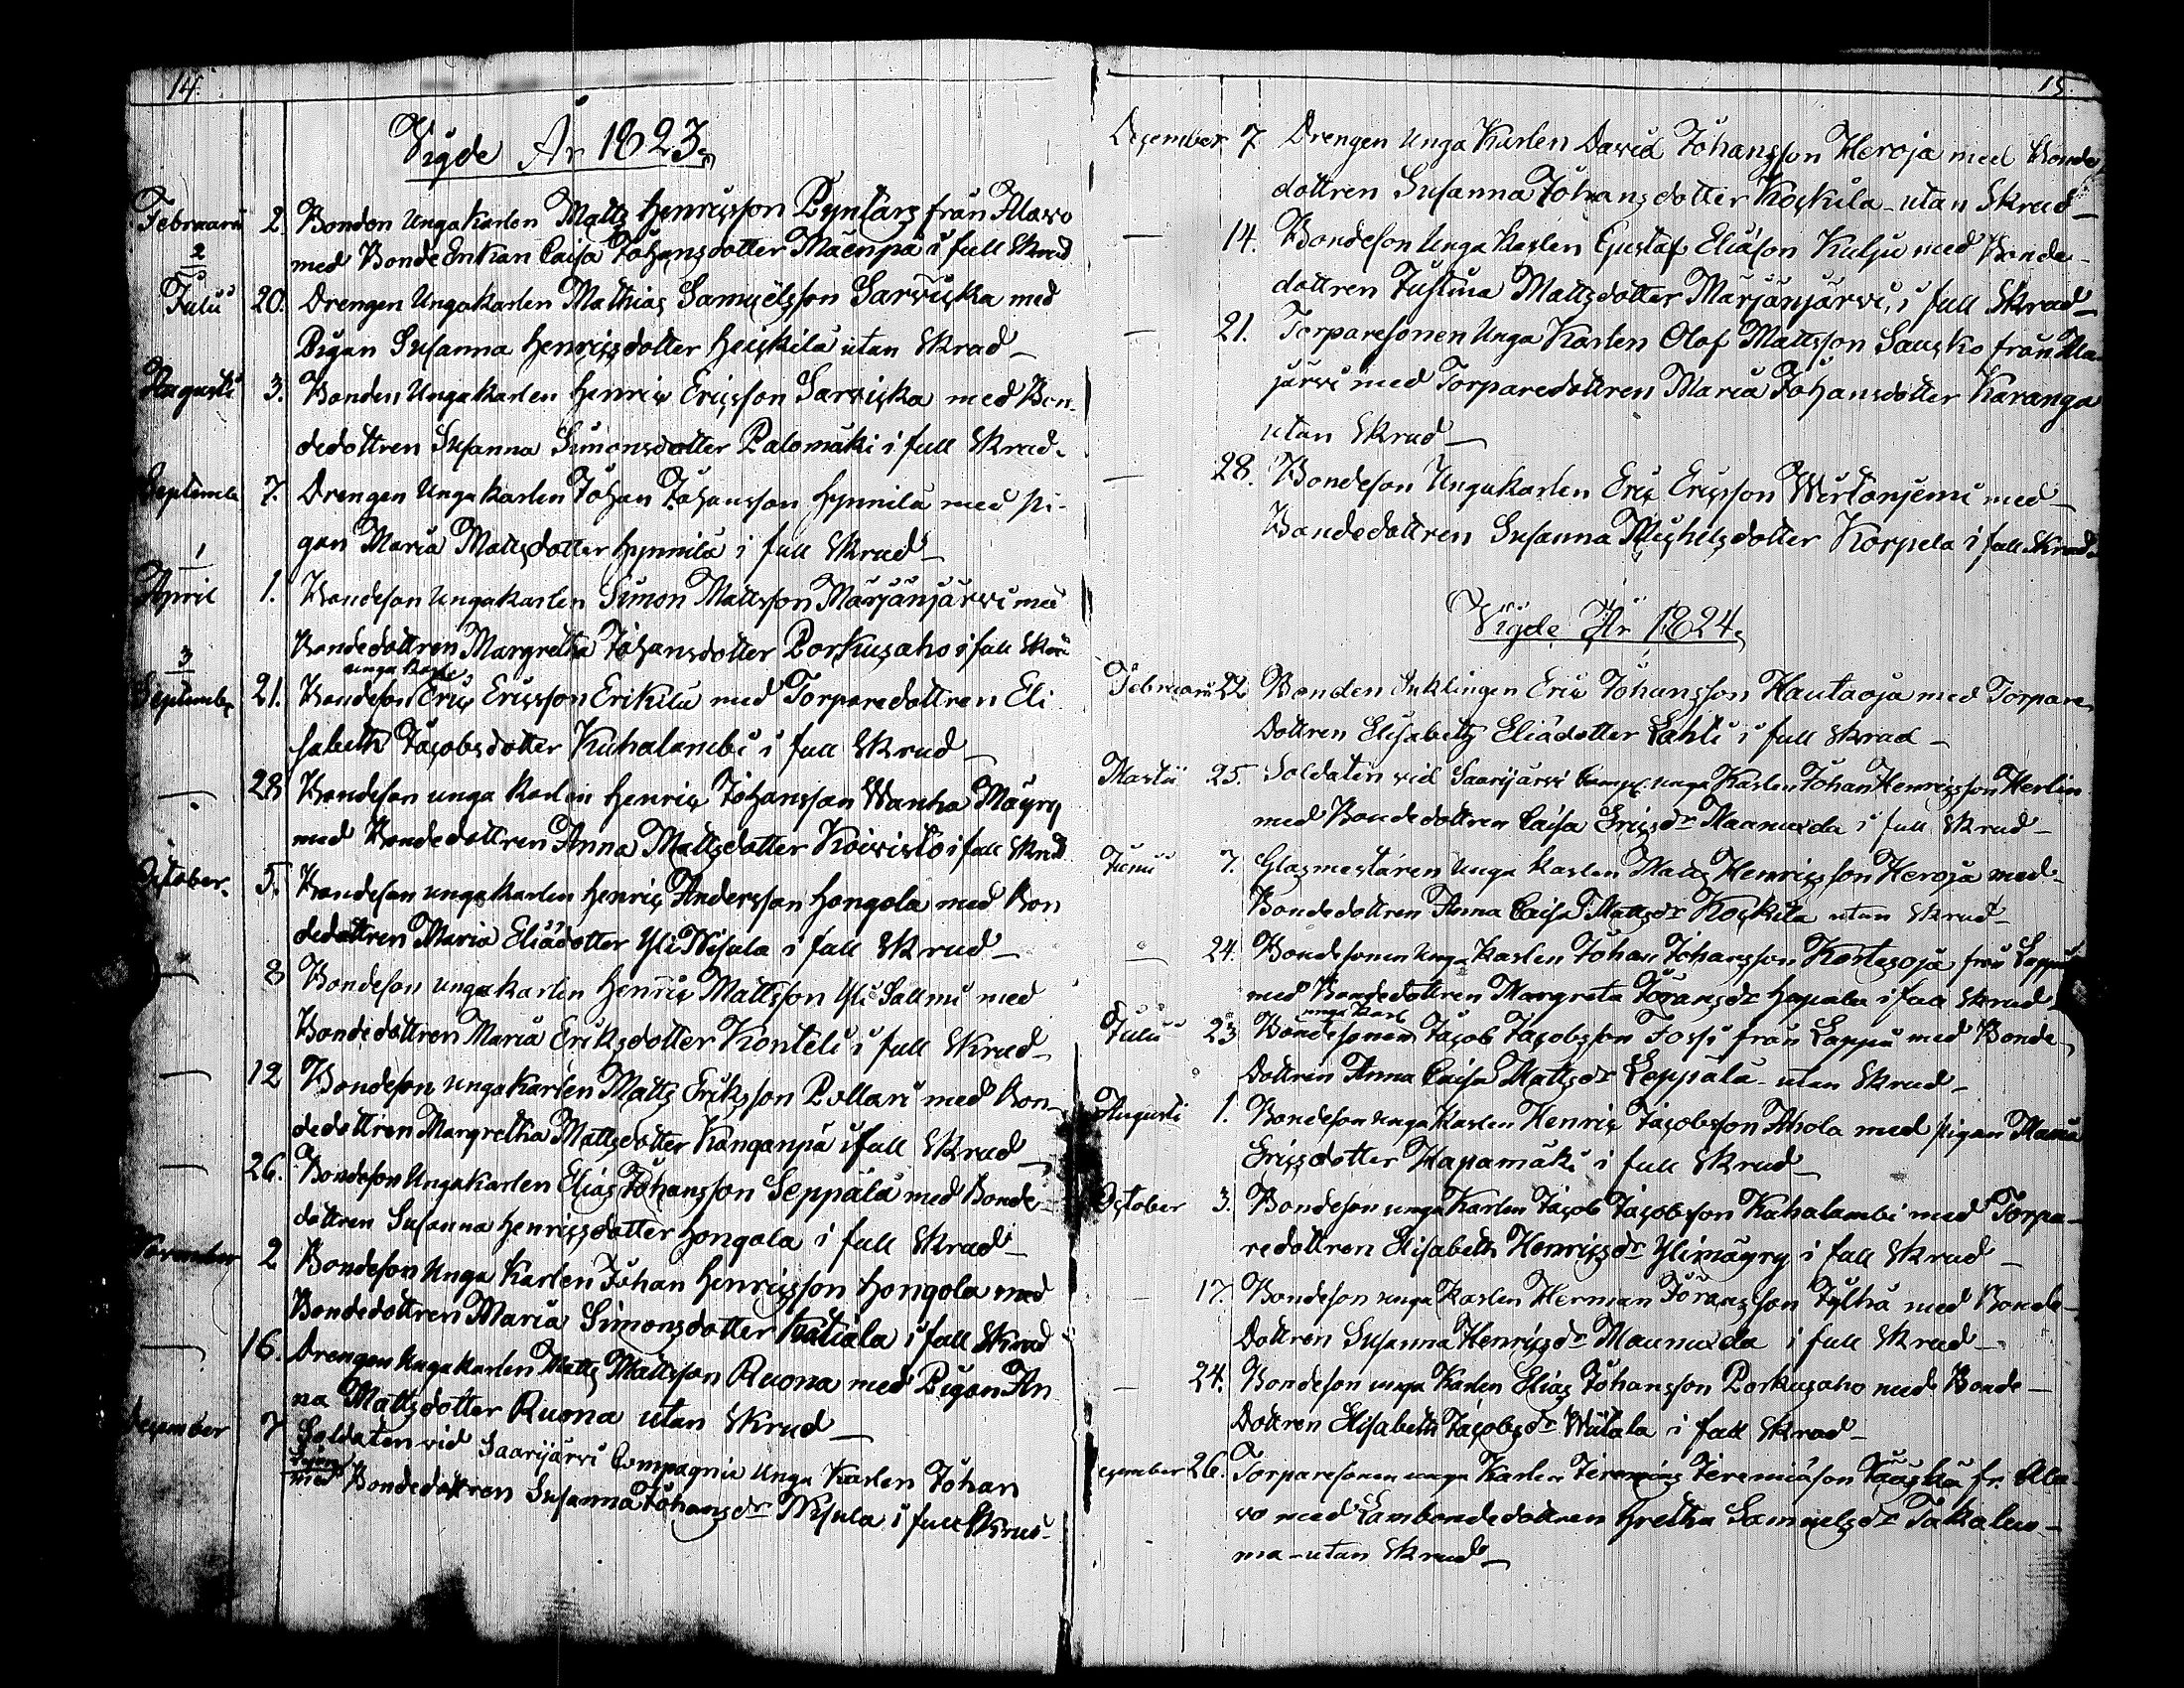 14.
Vigde År 1823.
Februarii 2. Bonden Ungakarlen Matts Henricsson Pyntärs från Alavo
med BondeEnkan Caisa Johansdotter Mäenpä i full Skrud
2
Julii 20. Drengen Ungakarlen Mathias Samuelsson Sarvicka med
Pigan Susanna Henricsdotter Heickilä utan Skrud
Augusti 3. Bonden Ungakarlen Henric Ericsson Sarvicka med Bon-
dedottren Susanna Simonsdotter Palomäki i full Skrud.
Septemb 7. Drengen Ungakarlen Johan Johansson Hynnilä med Pi-
gan Maria Mattsdotter Hynnilä i full Skrud
1
April 1. Bondeson Ungakarlen Simon Mattsson Marjänjärvi med
Bondedottren Margretha Johansdotter Porkusaho i full Skru
3
unga Karle
September 21. Bondeson Eric Ericsson Erikilä med Torparedottren Eli
sabeth Jacobsdotter Kuhalambi i full Skrud
— 28 Bondeson unga Karlen Henric Johansson Wanha Mäyry
med Bondedottren Anna Mattsdotter Koivisto i full Skrud
October. 5. Bondeson ungakarlen Henric Andersson Hongola med Bon
dedottren Maria Eliädotter Yli Nisula i full Skrud
— 8 Bondeson ungakarlen Henric Mattsson Yli Sallmi med
Bondedottren Maria Eriksdotter Konteli i full Skrud
— 12 Bondeson Ungakarlen Matts Eriksson Pollari med Bon
dedottren Margretha Mattsdotter Kanganpä i full Skrud
— 26. Bondeson Ungakarlen Elias Johansson Seppälä med Bonde-
dottren Susanna Henricsdotter Hongola i full Skrud
November 2 Bondeson Unga Karlen Johan Henricsson Hongola med
Bondedottren Maria Simonsdotter Kätiälä i full Skrud
— 16. Drengen Ungakarlen Matts Mattsson Ruona med Pigan An
na Mattsdotter Ruona utan Skrud
December 7 Soldaten vid Saarijärvi Compagnie Unga Karlen Johan
med Bondedottren Susanna Johansdr Nisula i full Skrud
15.
December 7 Drengen Unga Karlen David Johansson Heroja med Bonde
dottren Susanna Johansdotter Koskila utan Skrud
— 14. Bondeson Unga Karlen Gustaf Eliäson Kulju med Bonde-
dottren Justina Mattsdotter Marjänjärvi, i full Skrud
— 21. Torparesonen Unga Karlen Olof Mattsson Sausko från Ala-
järvi med Torparedottren Maria Johansdotter Karanga
utan Skrud
— 28. Bondeson Ungakarlen Eric Ericsson Wirtanjemi med
Bondedottren Susanna Michelsdotter Korpela i full Skrud
Vigde År 1824.
Februarii 22 Bonden Enklingen Eric Johansson Hautaoja med Torpare
Dottren Elisabeth Eliädotter Lahti i full Skrud
Martii 25. Soldaten vid Saarijärvi Comp. unga Karlen Johan Henricsson Herlin
med Bondedottren Caisa Ericsdr Maanuxela i full Skrud
Junii 7. Glasmestaren unga Karlen Matts Henricsson Heroja med
Bondedottren Anna Caisa Mattsdr Koskila utan Skrud
— 24. Bondesonen unga Karlen Johan Johansson Kortesoja från Lappå
med Bondedottren Margreta Göransdr Hapala i full Skrud
unga Karl
Julii 23 Bondesonen Jacob Jacobsson Jossi från Lappå med Bonde
Dottren Anna Caisa Mattsdr Leppälä utan Skrud
Augusti 1. Bondeson unga Karlen Henric Jacobsson Ahola med Pigan Maria
Ericsdotter Hapamäki i full Skrud
October 3. Bondeson unga Karlen Jacob Jacobsson Kuhalambi med Torpa-
redottren Elisabeth Henricsdr Ylimäyry i full Skrud
— 17. Bondeson unga Karlen Herman Göransson Jylhä med Bonde
Dottren Susanna Henricsdr Maunuxela i full Skrud
— 24. Bondeson unga Karlen Elias Johansson Porkusaho med Bonde
Dottren Elisabeth Jacobsdr Wätälä i full Skrud
ecember 26. Torparesonen unga Karlen Jeremias Jeremiäson fr. Ala-
vo med Lambondedottren Gretha Samuelsdr Takaluo-
ma utan Skrud